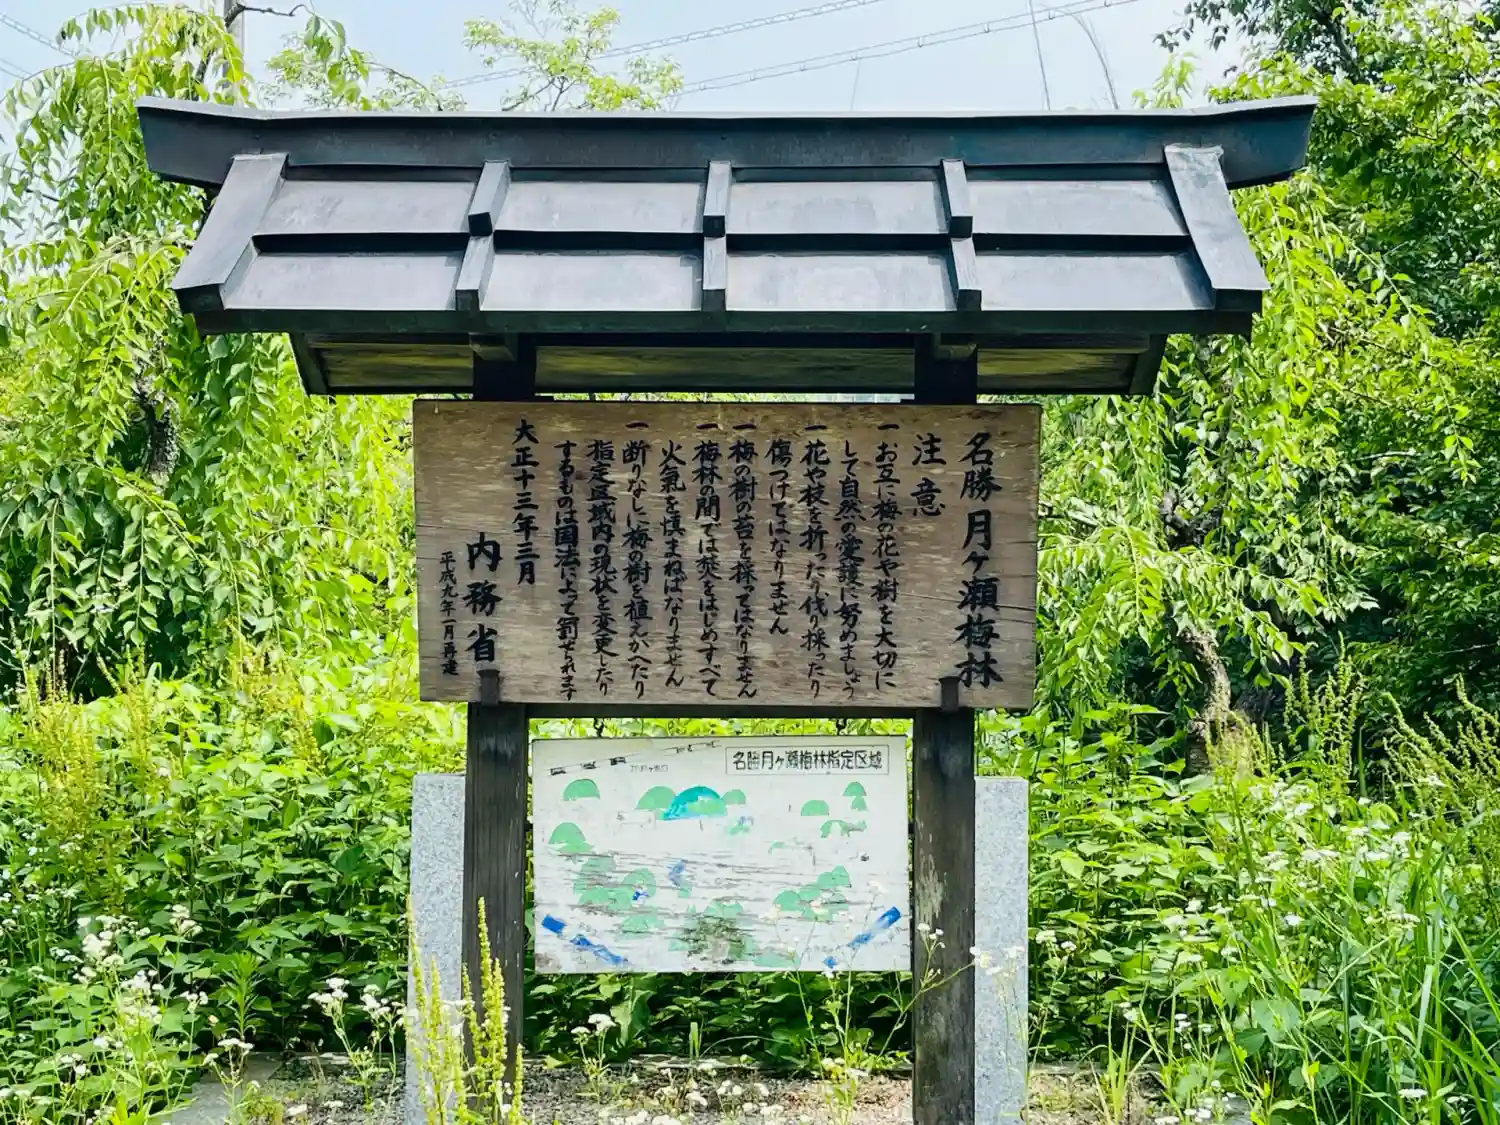 名勝月ヶ瀬梅林
注意
一お互に梅の花や樹を大切に
して自然の愛護に努めましょう
一花や枝を折ったり伐り採ったり
傷つけてはなりません
一梅の樹の苔を採ってはなりません
一梅林の間では焚をはじめすべて
火氣を慎まねばなりません
一断りなしに梅の樹を植えかへたり
指定区域内の現状を変更したり
するものは国法によって罰せられます
大正十三年三月
内務省
平成九年一月再建
名勝月ヶ瀬梅林指定区域